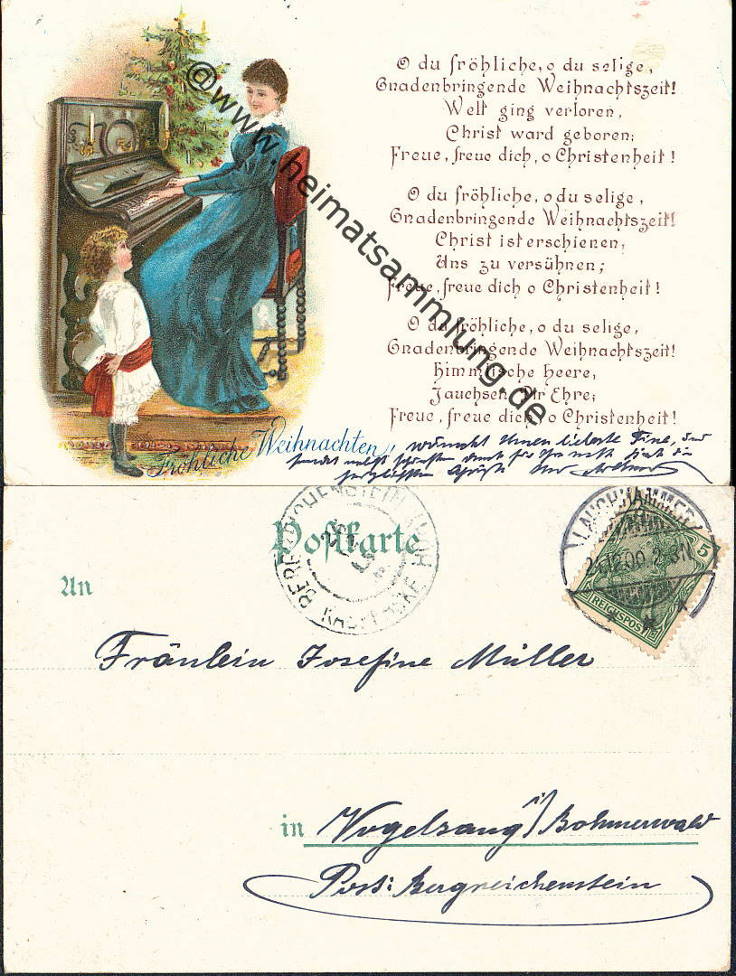 O du fröhliche, o du selige,
Gnadenbringende Weihnachtszeit!
Welt ging verloren,
Christ ward geboren;
Freue, freue dich, o Christenheit!
O du fröhliche, o du selige,
Gnadenbringende Weihnachtszeit!
Christ ist erschienen,
Uns zu versühnen;
Freue, freue dich o Christenheit!
O du fröhliche, o du selige,
Gnadenbringende Weihnachtszeit!
Himmlische Heere,
Jauchsen Dir Ehre;
Freue, freue dich, o Christenheit!
Fröhliche Weihnachten!
wünscht Ihnen liebste Fine, und
©www.heimatsammlung.de
Postkarte
BERGREICHENSTEIN
KAŠPERSKÉ HORY
LAUCHHAMMER
12.00
5
REICHSPOST
An
Fräulein Josefine Müller
in Vogelsang i/Böhmerwald
Post: Bergreichenstein